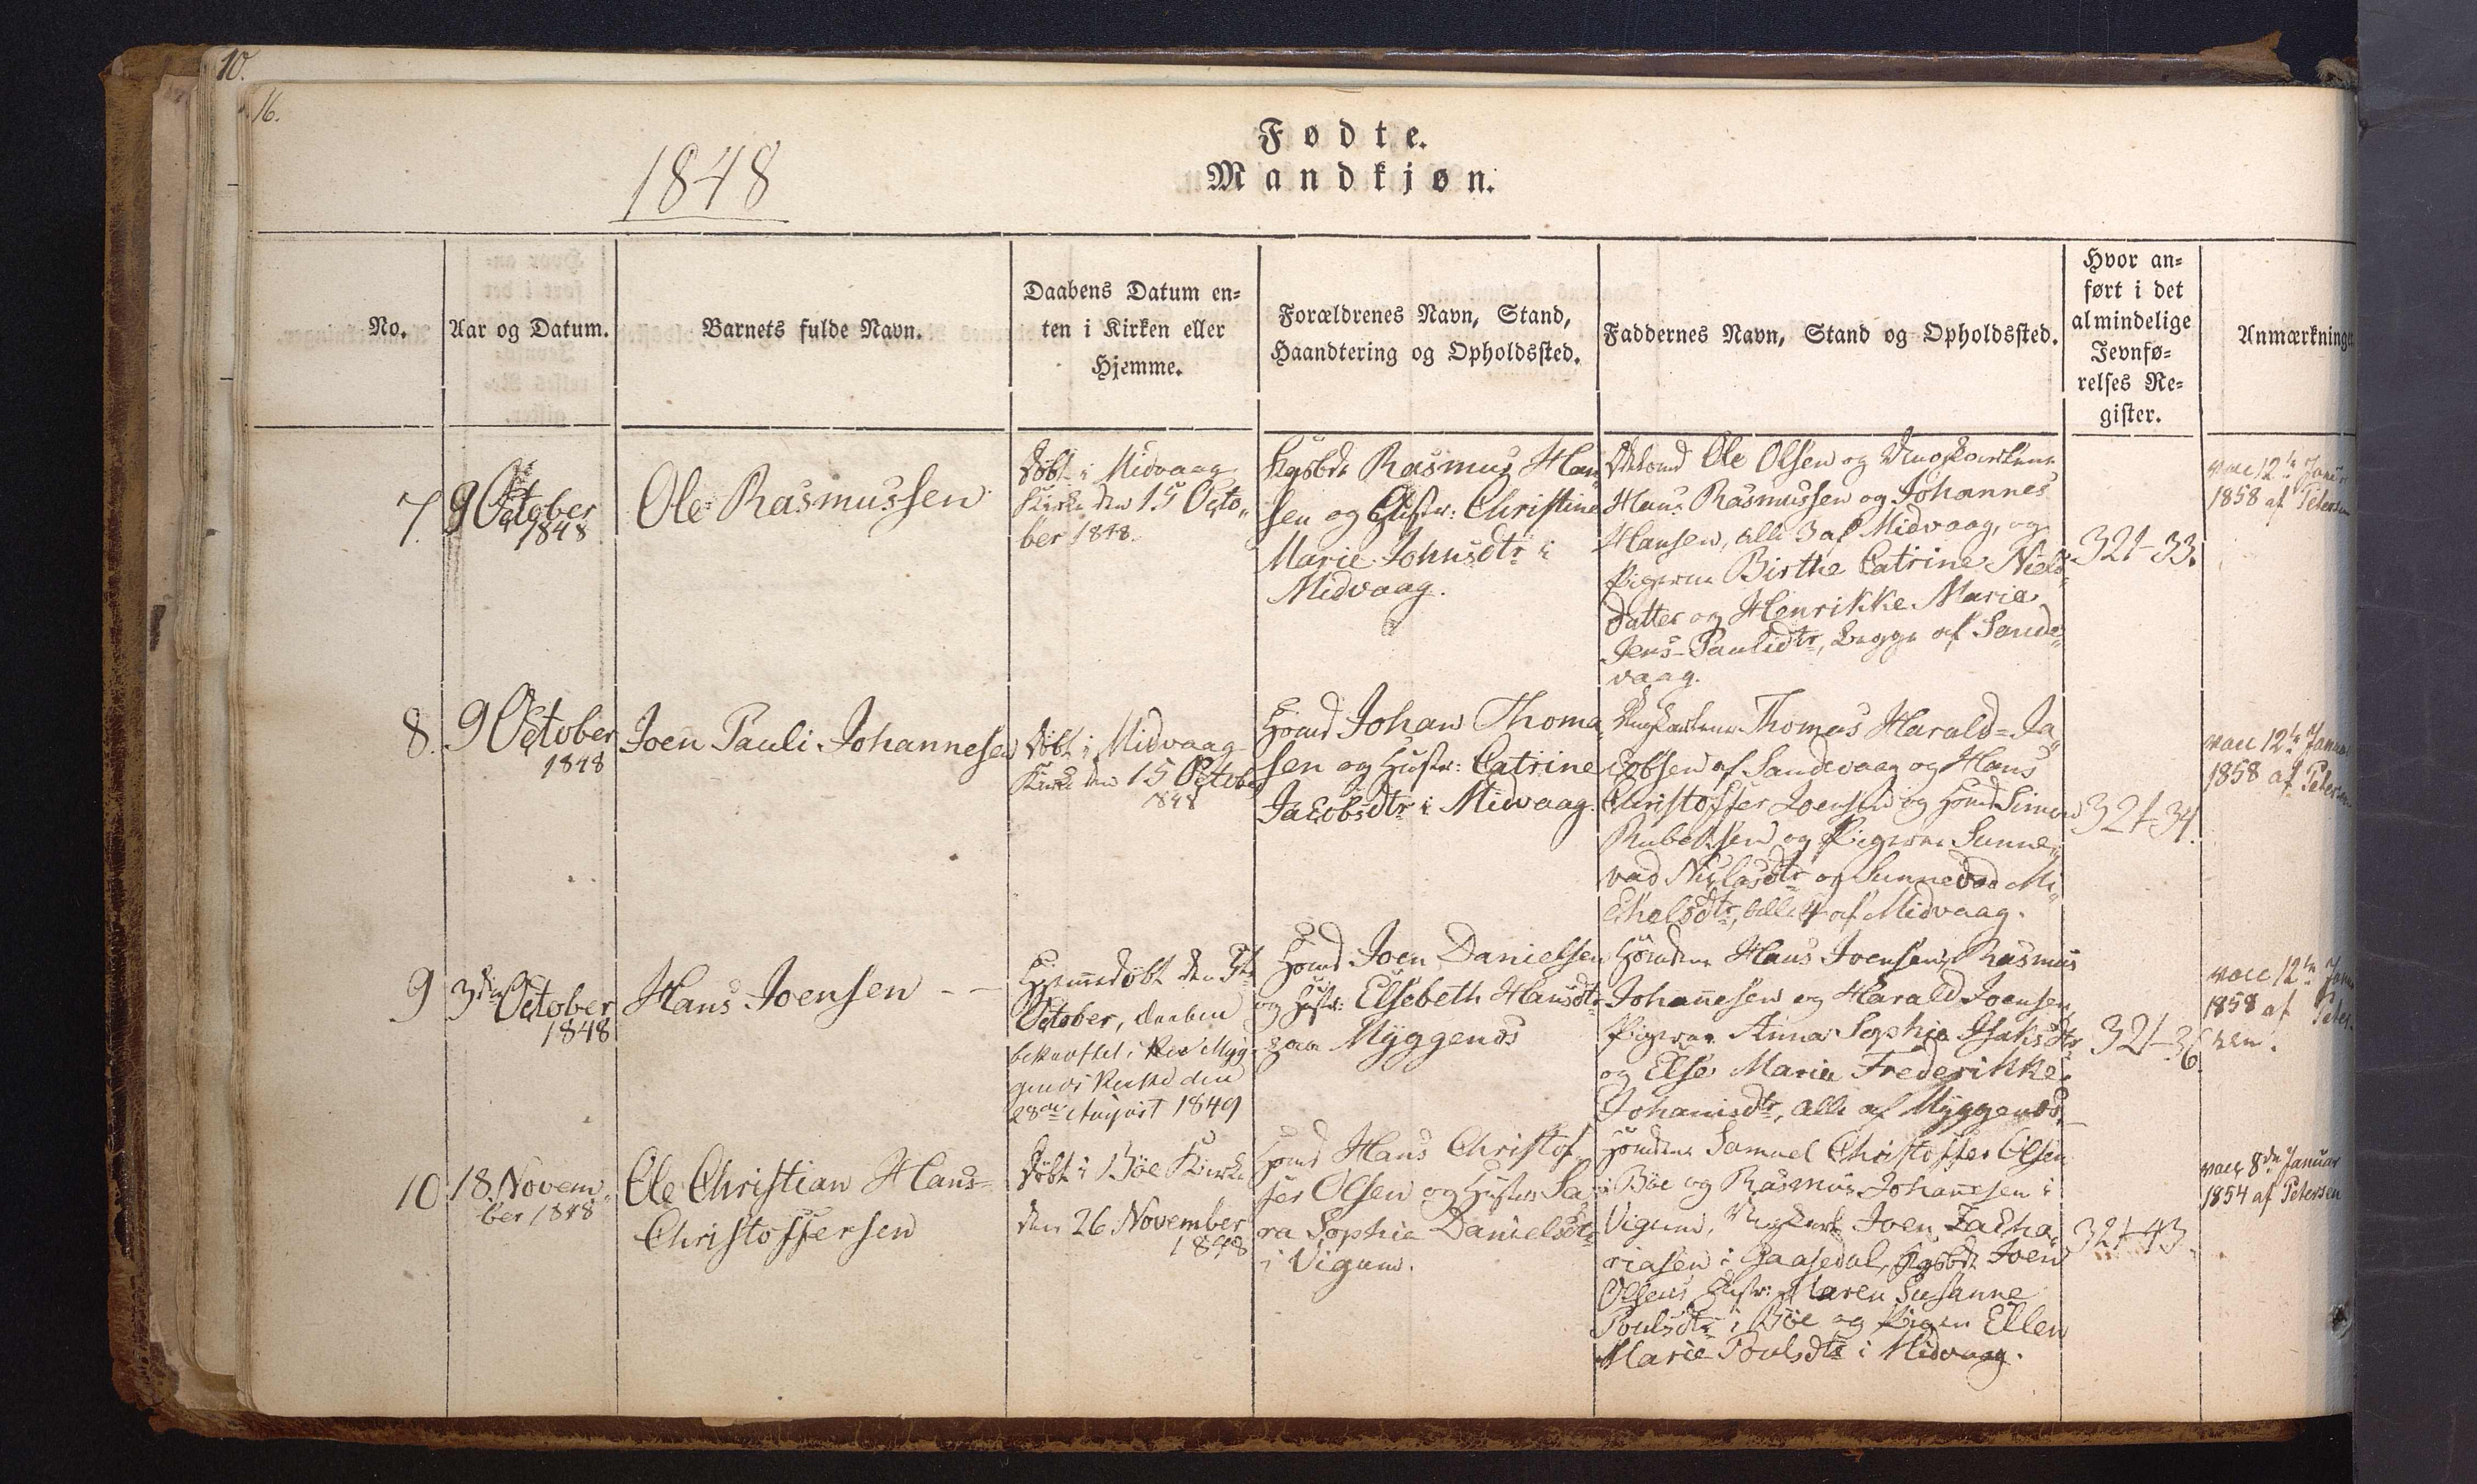 10.
16.
1848
Fødte.
Mandkjøn.
No.
Aar og Datum.
Barnets fulde Navn.
Daabens Datum en-
ten i Kirken eller
Hjemme.
Forældrenes Navn, Stand,
Haandtering og Opholdssted.
Faddernes Navn, Stand og Opholdssted.
Hvor an-
ført i det
almindelige
Jevnfø-
relses Re-
gister.
Anmærkninge
7.
9 October
1848
Ole Rasmussen
Døbt i Midvaag
Kirke den 15 Octo„
ber 1848.
Kgsbd. Rasmus Han„
sen og Hustr: Christine
Marie Johnsdtr i
Midvaag.
Ole Olsen og Ungkarlene
Hans Rasmussen og Johannes
Hansen, alle 3 af Midvaag, og
Pigerne Birthe Catrine Niels„
datter og Henrikke Maria
Jens-Paulidtr, begge af Sande„
vaag.
321-33.
vacc 12te Januar
1858 af Petersen
8.
9 October
1848
Joen Pauli Johannesen
Døbt i Midvaag
Kirke den 15 October
1848
Huusmd Johan Thoma„
sen og Hustr: Catrine
Jacobsdtr i Midvaag.
Ungkarlene Thomas Harald-Ja„
cobsen af Sandevaag og Hans
Christoffer Joensen og Huusmd Simon
Rubeksen og Pigerne Sunne„
vad Niclasdtr og Sunnevad Mi„
chelsdtr, alle 4 af Midvaag.
321-34.
vacc 12te Januar
1858 af Petersen
9
3die October
1848
Hans Joensen - -
Hjemmedøbt den
October, daaben
bekræftet i Myg
genæs Kirke den
28de August 1849
Huusmd Joen Danielsen
og Hustr: Elsebeth Hansdtr
paa Myggenæs
Huusmdene Hans Joensen, Rasmus
Johannesen og Harald Joensen,
Pigerne Anna Sophia Isaksdtr
og Else Maria Frederikke
Johanisdtr, alle af Myggenæs.
321-36.
vacc 12te Janu
1858 af Peter-
sen.
10
18. Novem„
ber 1848
Ole Christian Hans-
Christoffersen
Døbt i Bøe Kirke
den 26 November
1848
Huusmd Hans Christof„
fer Olsen og Hustru Sa„
ra Sophia Danielsdtr
i Vigum.
Huusmdene Samuel Christoffer Olsen
i Bøe og Rasmus Johannesen i
Vigum, Ungkarl Joen Zacha„
riasen i Gaasedal, Kgsbd. Joen
Olsens Hustr: Maren Susanne
Poulsdtr i Bøe og Pigen Ellen
Marie Poulsdtr i Midvaag.
321-43.
vacc 8de Januar
1854 af Petersen